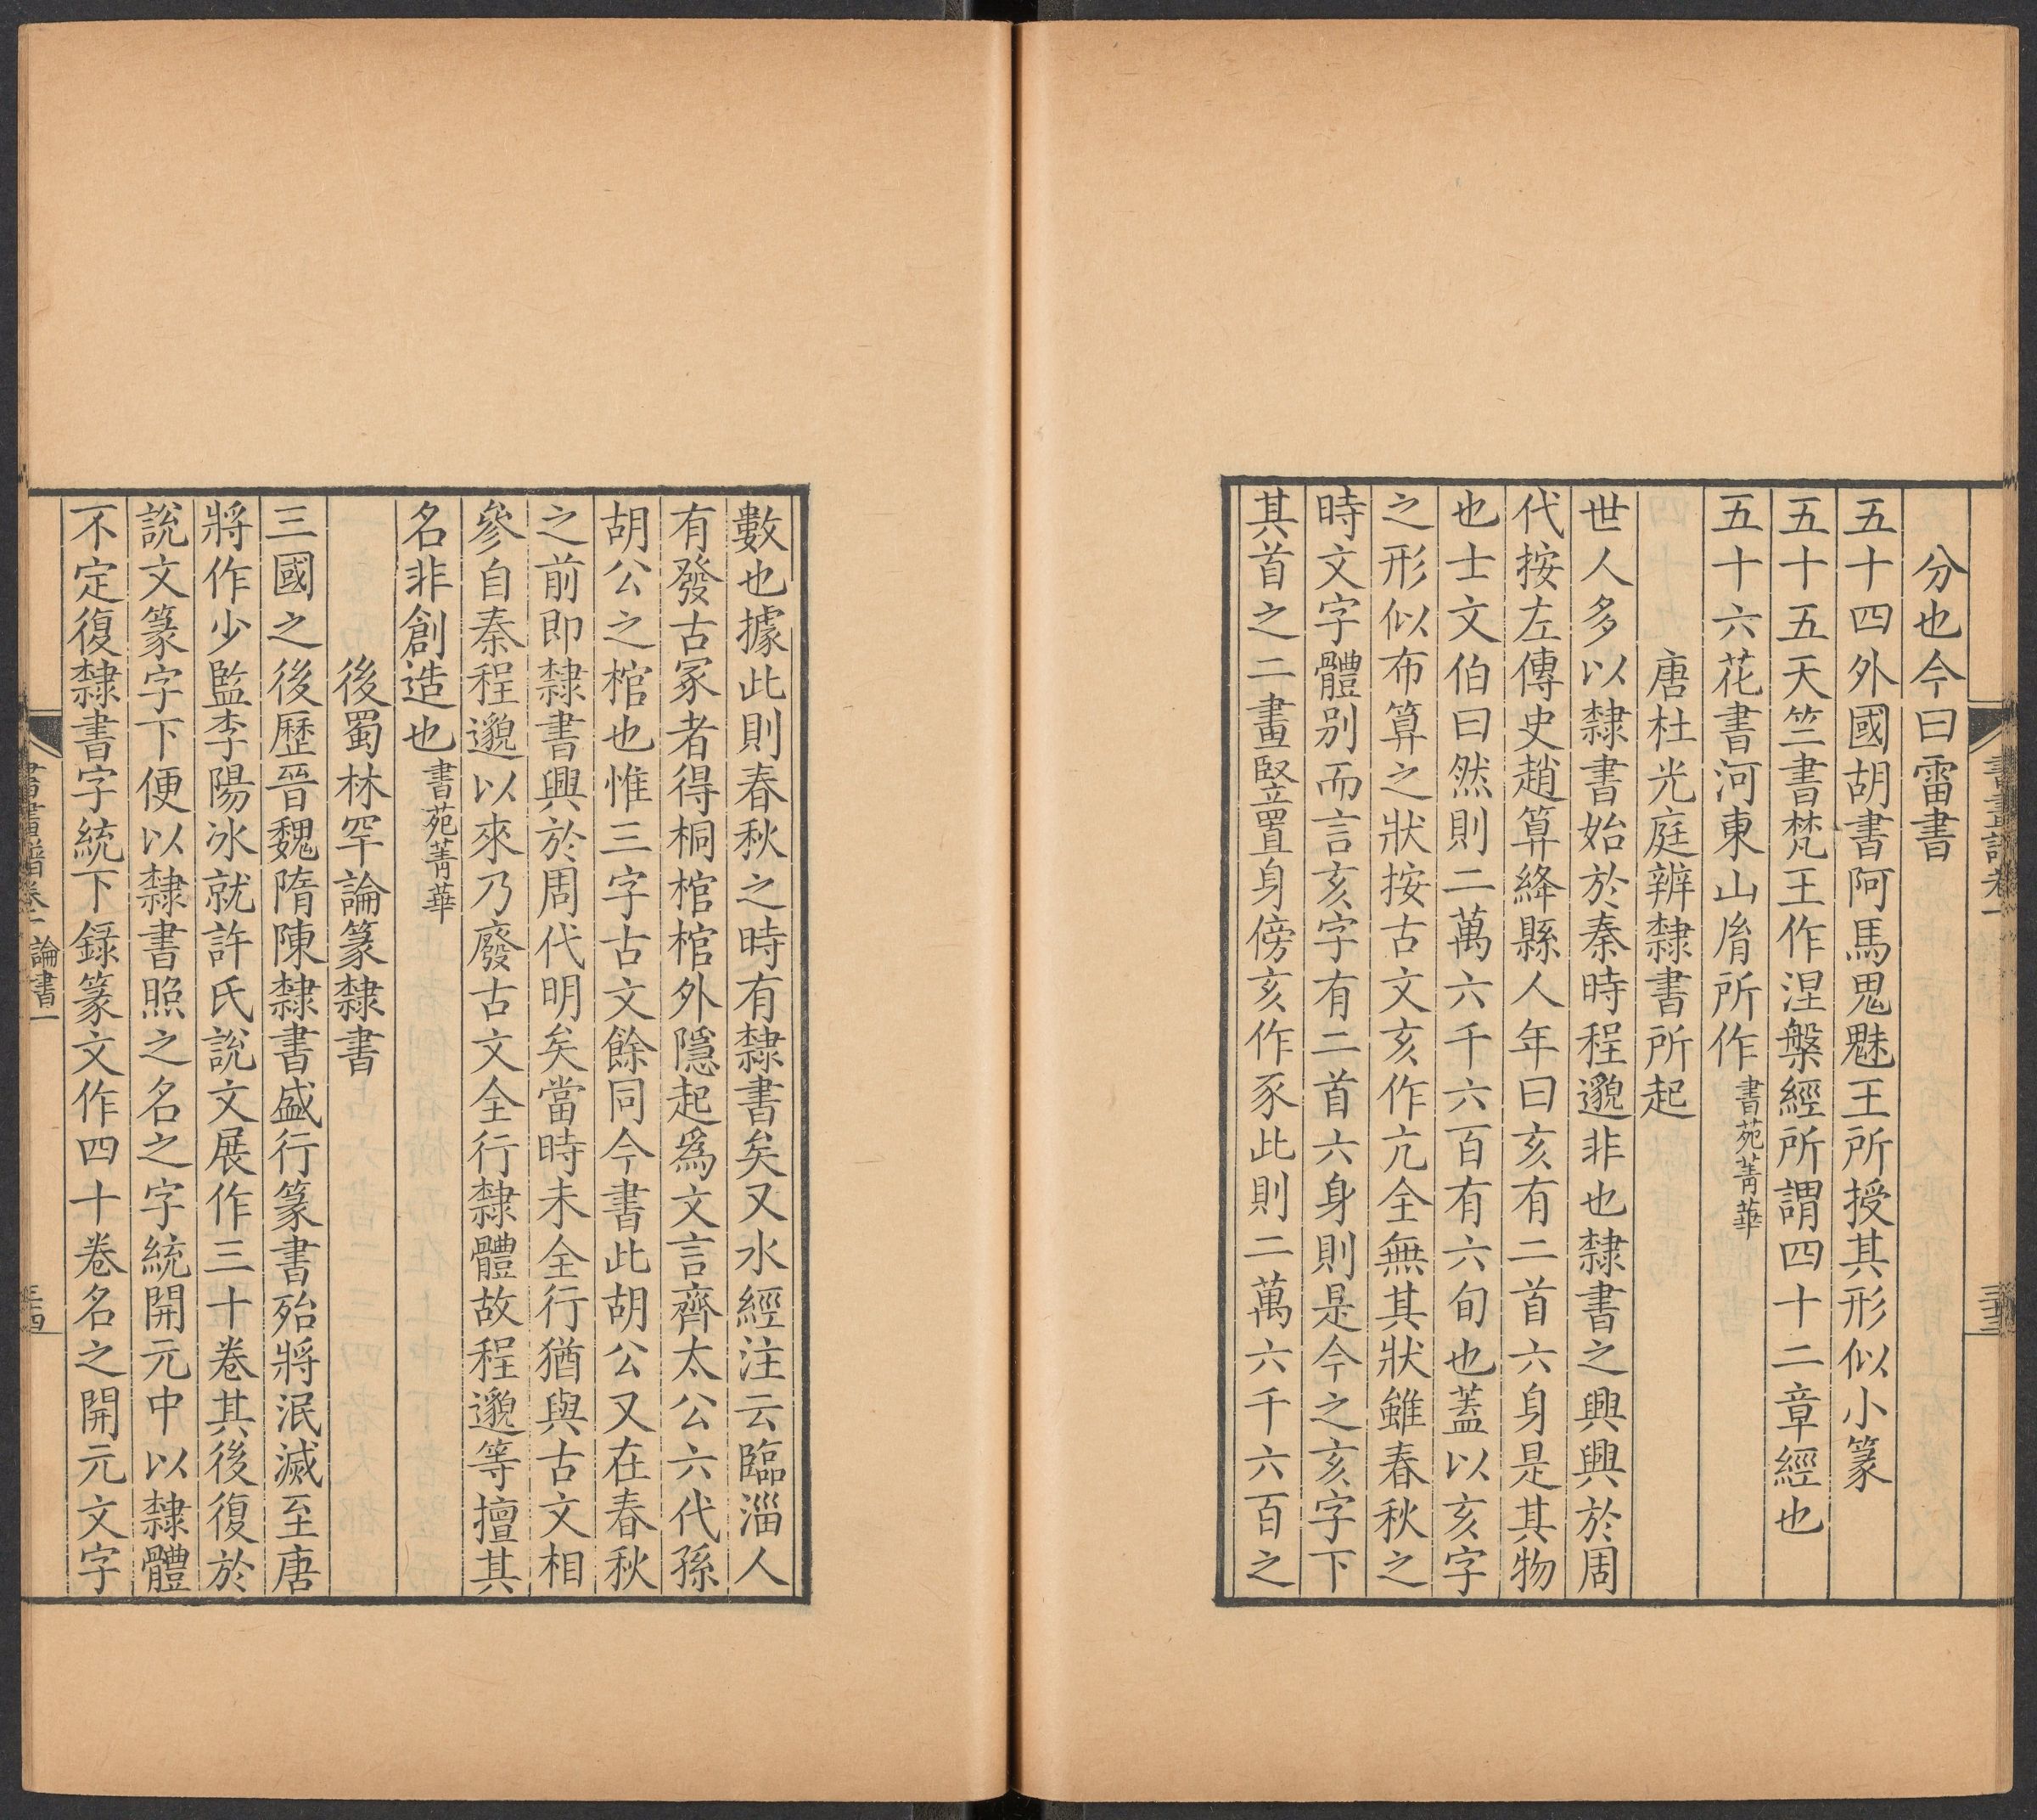 分也今曰雷書
五十四外國胡書阿馬鬼魅王所授其形似小篆
五十五天竺書梵王作涅槃經所謂四十二章經也
五十六花書河東山胤所作書苑菁華
唐杜光庭辨隸書所起
世人多以隸書始於秦時程邈非也隸書之興興於周
代按左傳史趙算絳縣人年曰亥有二首六身是其物
也士文伯曰然則二萬六千六百有六旬也蓋以亥字
之形似布算之狀按古文亥作亢全無其狀雖春秋之
時文字體別而言亥字有二首六身則是今之亥字下
其首之二畫竪置身傍亥作豕此則二萬六千六百之
數也據此則春秋之時有隸書矣又水經注云臨淄人
有發古冢者得桐棺棺外隱起爲文言齊太公六代孫
胡公之棺也惟三字古文餘同今書此胡公又在春秋
之前即隸書興於周代明矣當時未全行猶與古文相
參自秦程邈以來乃廢古文全行隸體故程邈等擅其
名非創造也書苑菁華
後蜀林罕論篆隸書
三國之後歷晉魏隋陳隸書盛行篆書殆將泯滅至唐
將作少監李陽冰就許氏說文展作三十卷其後復於
說文篆字下便以隸書照之名之字統開元中以隸體
不定復隸書字統下録篆文作四十卷名之開元文字
書畫譜卷一 論書一